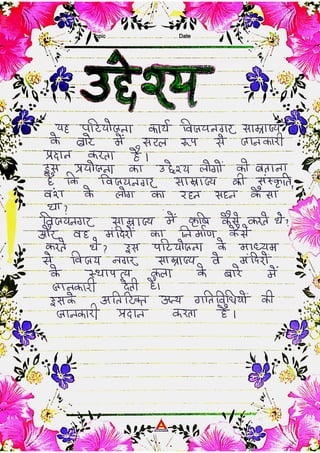 Topic Date
उद्देश्य
यह परियोजना कार्य विजयनगर साम्राज्य
के बारे में सरल रूप से जानकारी
प्रदान करता है।
इस प्रयोजना का उद्देश्य लोगों को बताना
है कि विजयनगर साम्राज्य की संस्कृति,
वंश के लोगों का रहन सहन कैसा
था?
विजयनगर साम्राज्य में कृषि कैसे करते थे?
और वह मंदिरों का निर्माण कैसे
करते थे? इस परियोजना के माध्यम
से विजय नगर साम्राज्य ते मंदिरो
के स्थापत्य कला के बारे में
जानकारी देती है।
इसके अतिरिक्त अन्य गतिविधियों की
जानकारी प्रदान करता है।